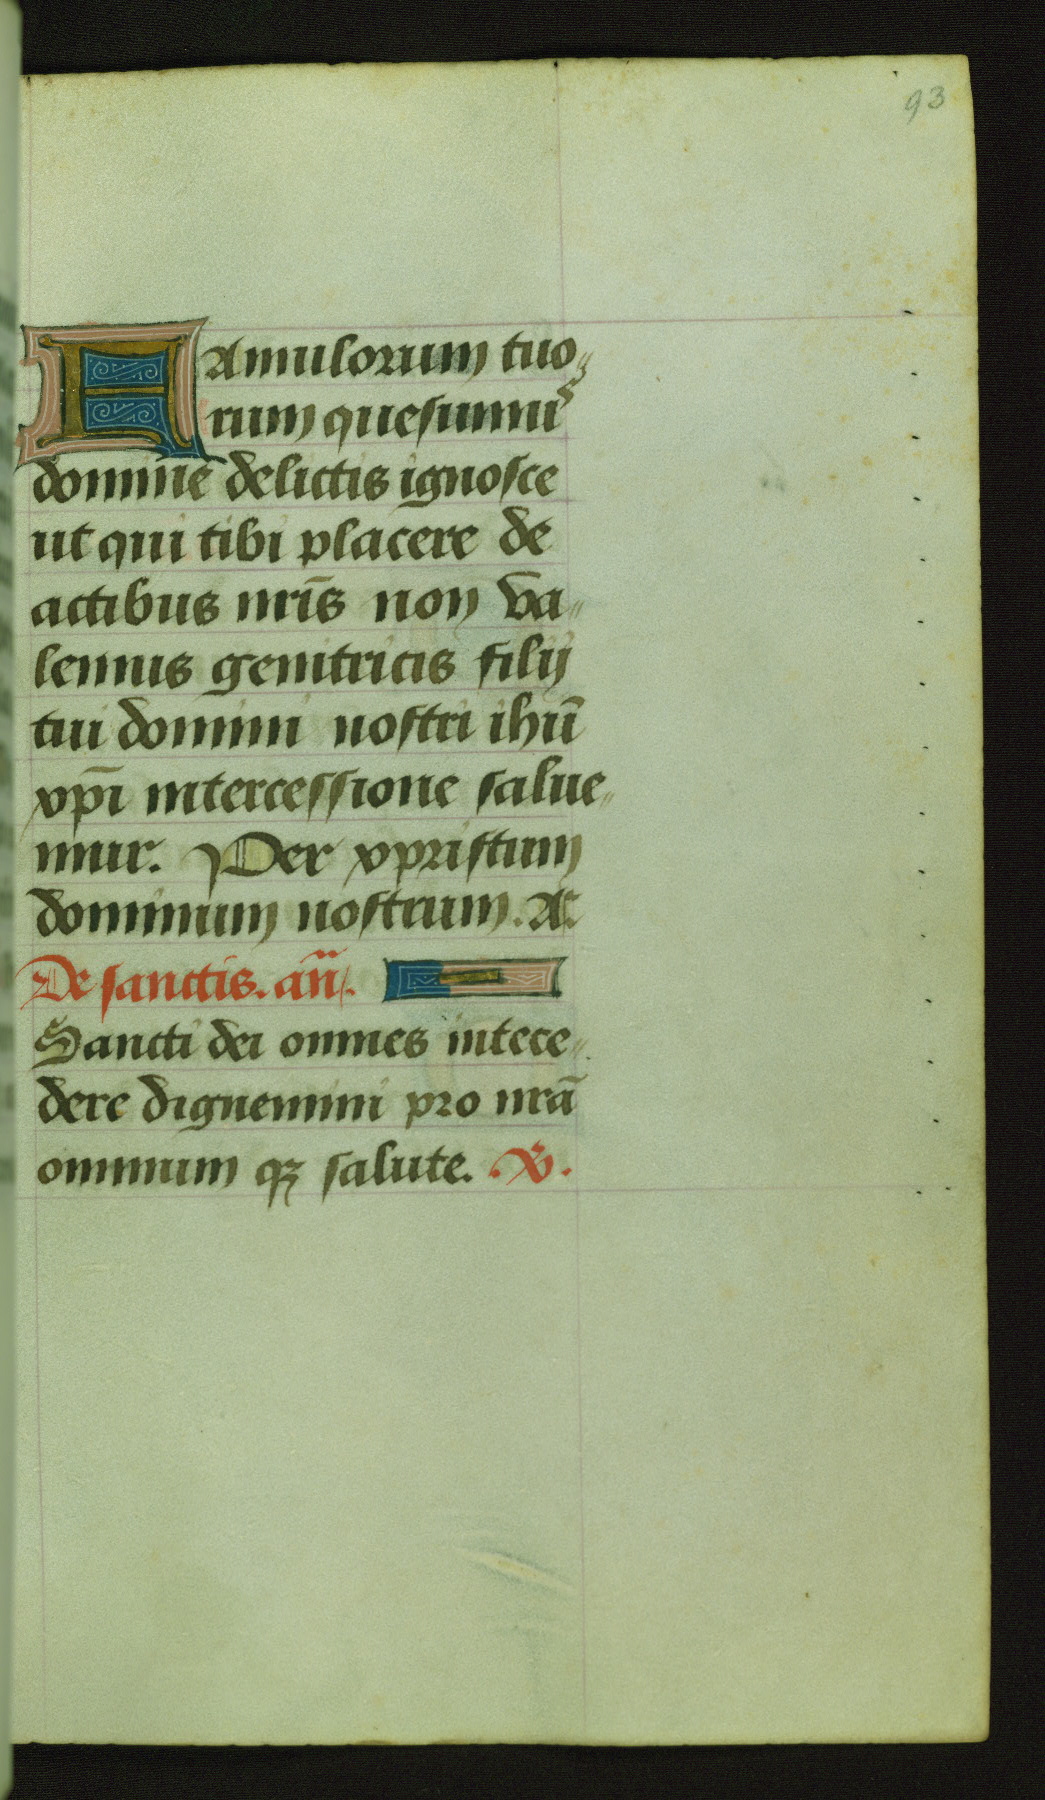 93
FAmulorum tuo
rum quesumus
domine delictis ignosce
ut qui tibi placere de
actibus nr̄is non va
lemus genitricis filij
tui domini nostri ihū
xp̄i intercessione salue
mur. Per xpristum
dominum nostrum. A.
De sanctis. an̄.
Sancti dei omnes intece
dere dignemini pro nrā
omnium qꝫ salute. ℣.